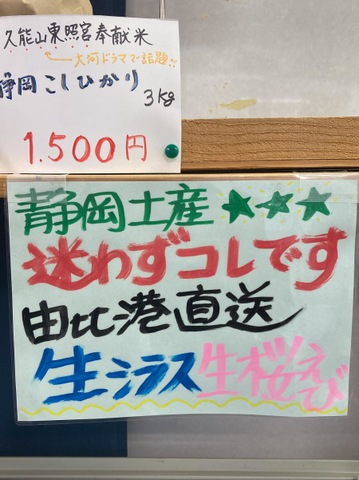 久能山東照宮奉献米
大河ドラマで話題!!
静岡こしひかり
3kg
1.500円
静岡土産★★★
迷わずコレです
由比港直送
生シラス生桜えび